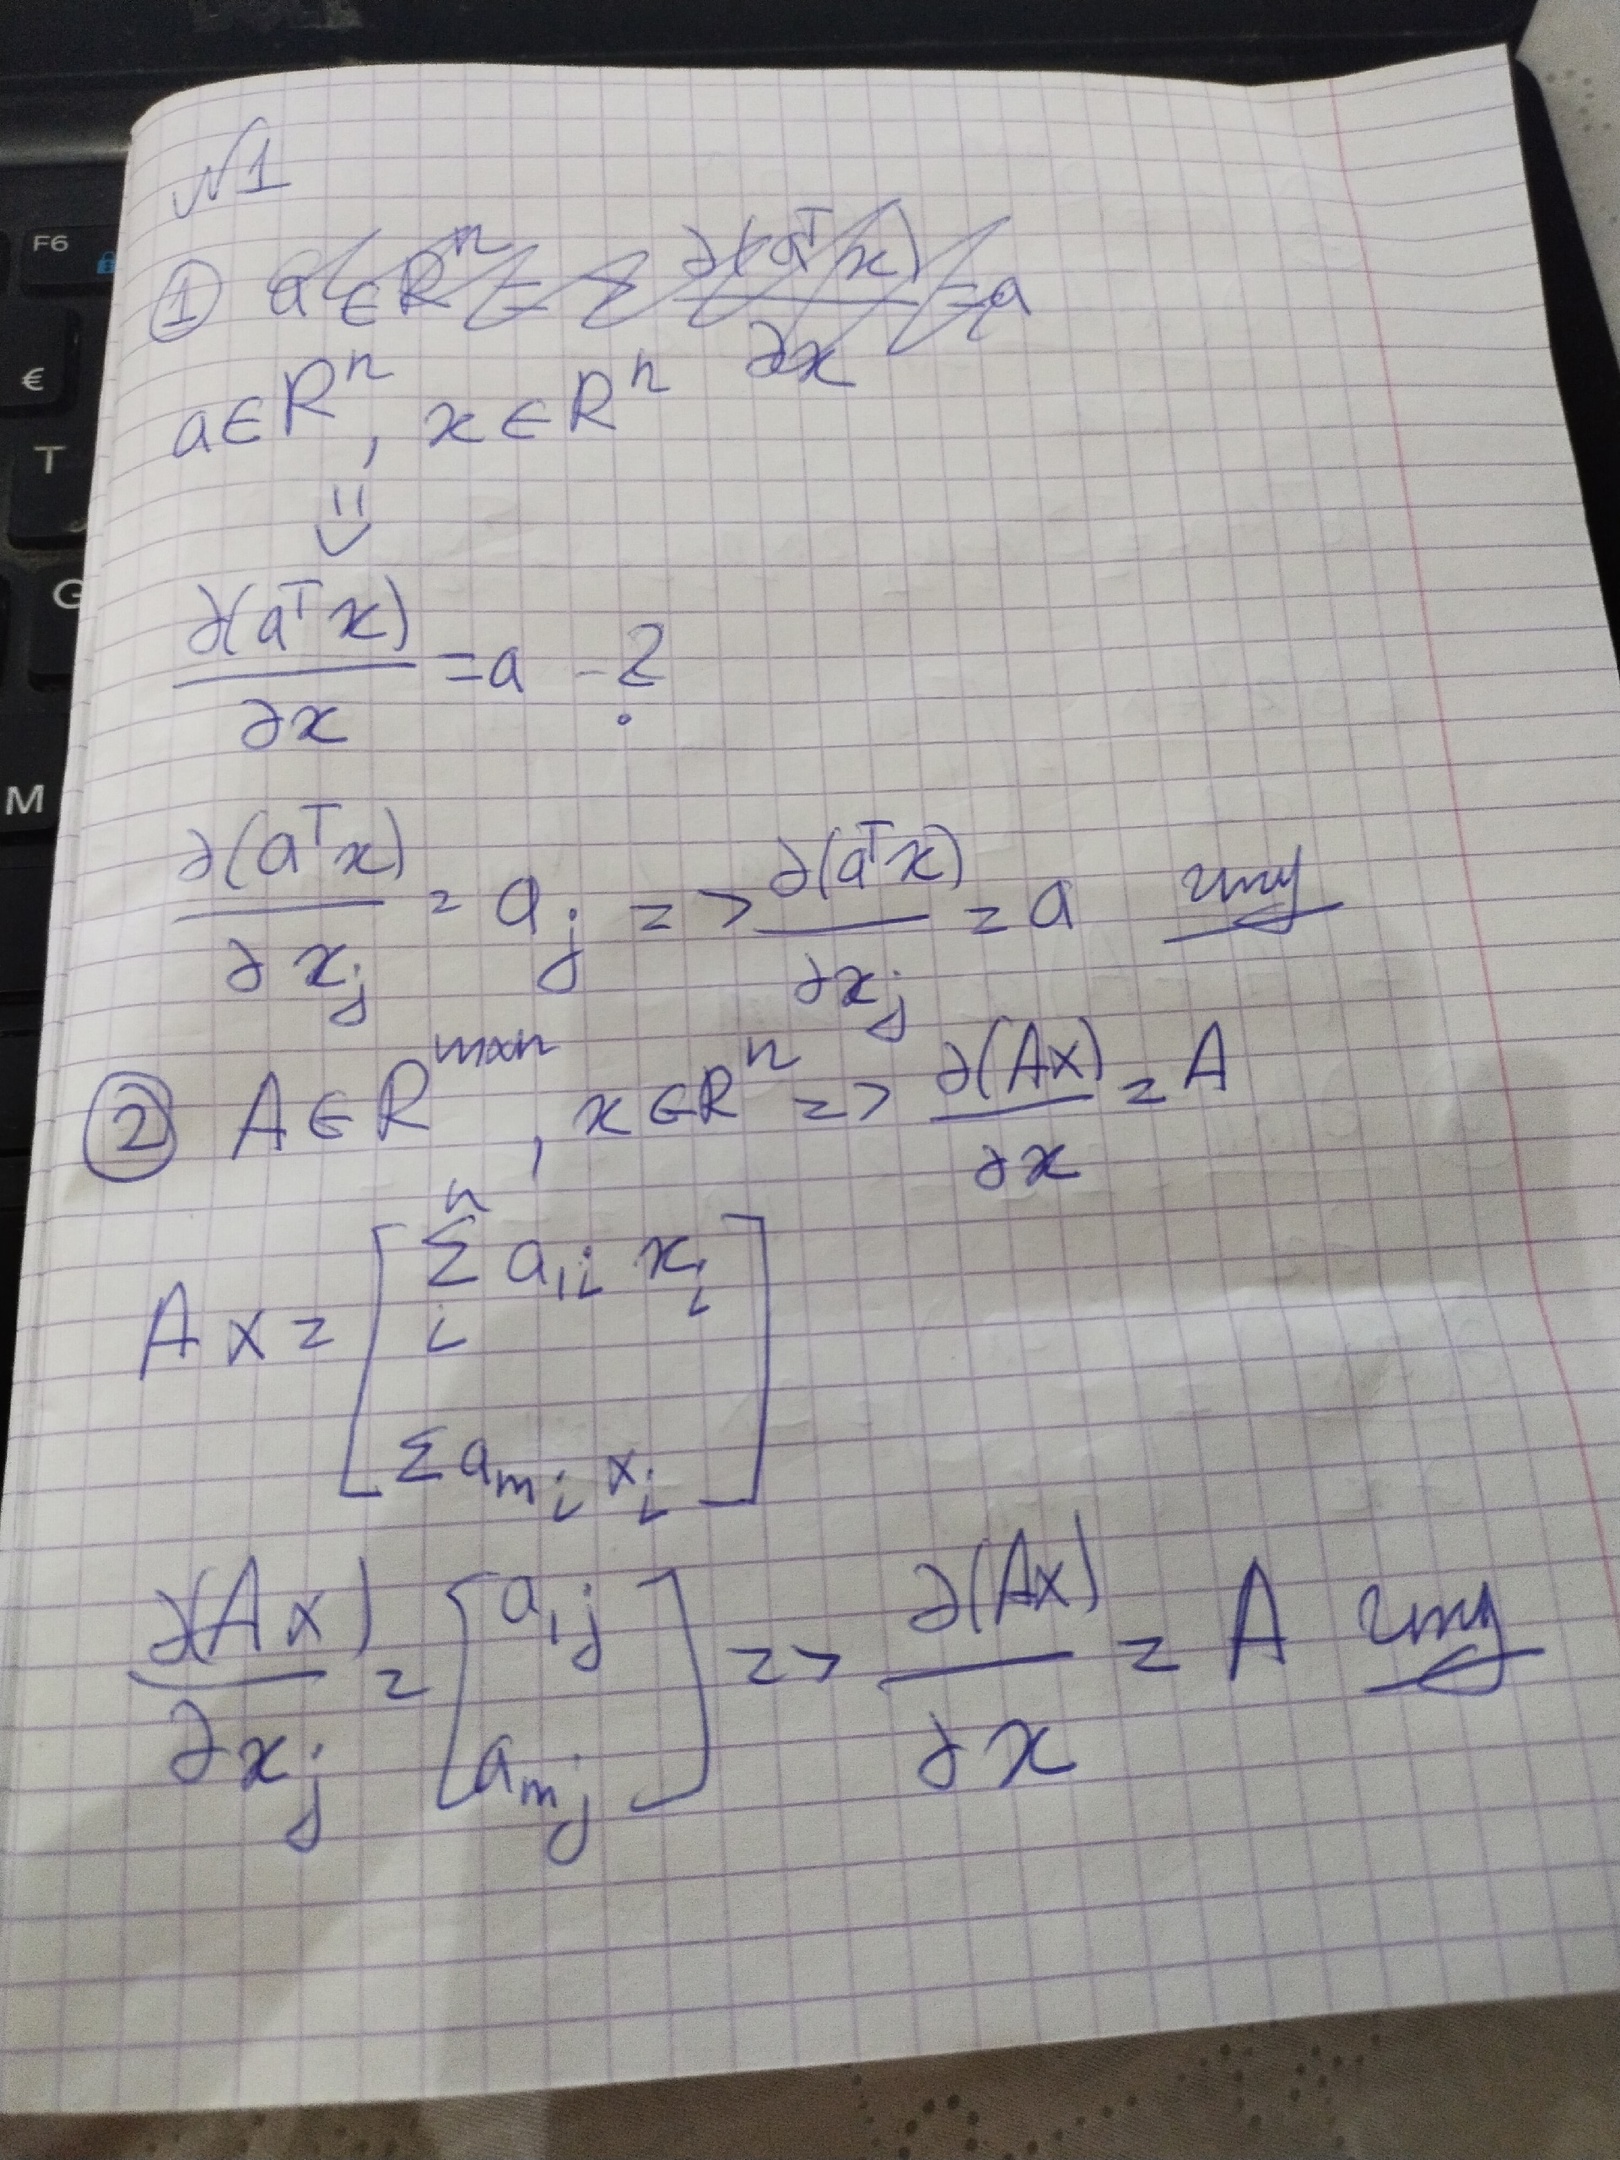 DELL
F6
€
T
G
M
№1
① a ∈ R^n => ∂(a^T x)/∂x = a
a ∈ R^n, x ∈ R^n
⇓
∂(a^T x)/∂x = a - ?
∂(a^T x)/∂x_j = a_j => ∂(a^T x)/∂x_j = a чтд
② A ∈ R^{m×n}, x ∈ R^n => ∂(Ax)/∂x = A
Ax = [ Σ_i^n a_{1i} x_i
Σ a_{mi} x_i ]
∂(Ax)/∂x_j = [ a_{1j}
a_{mj} ] => ∂(Ax)/∂x = A чтд